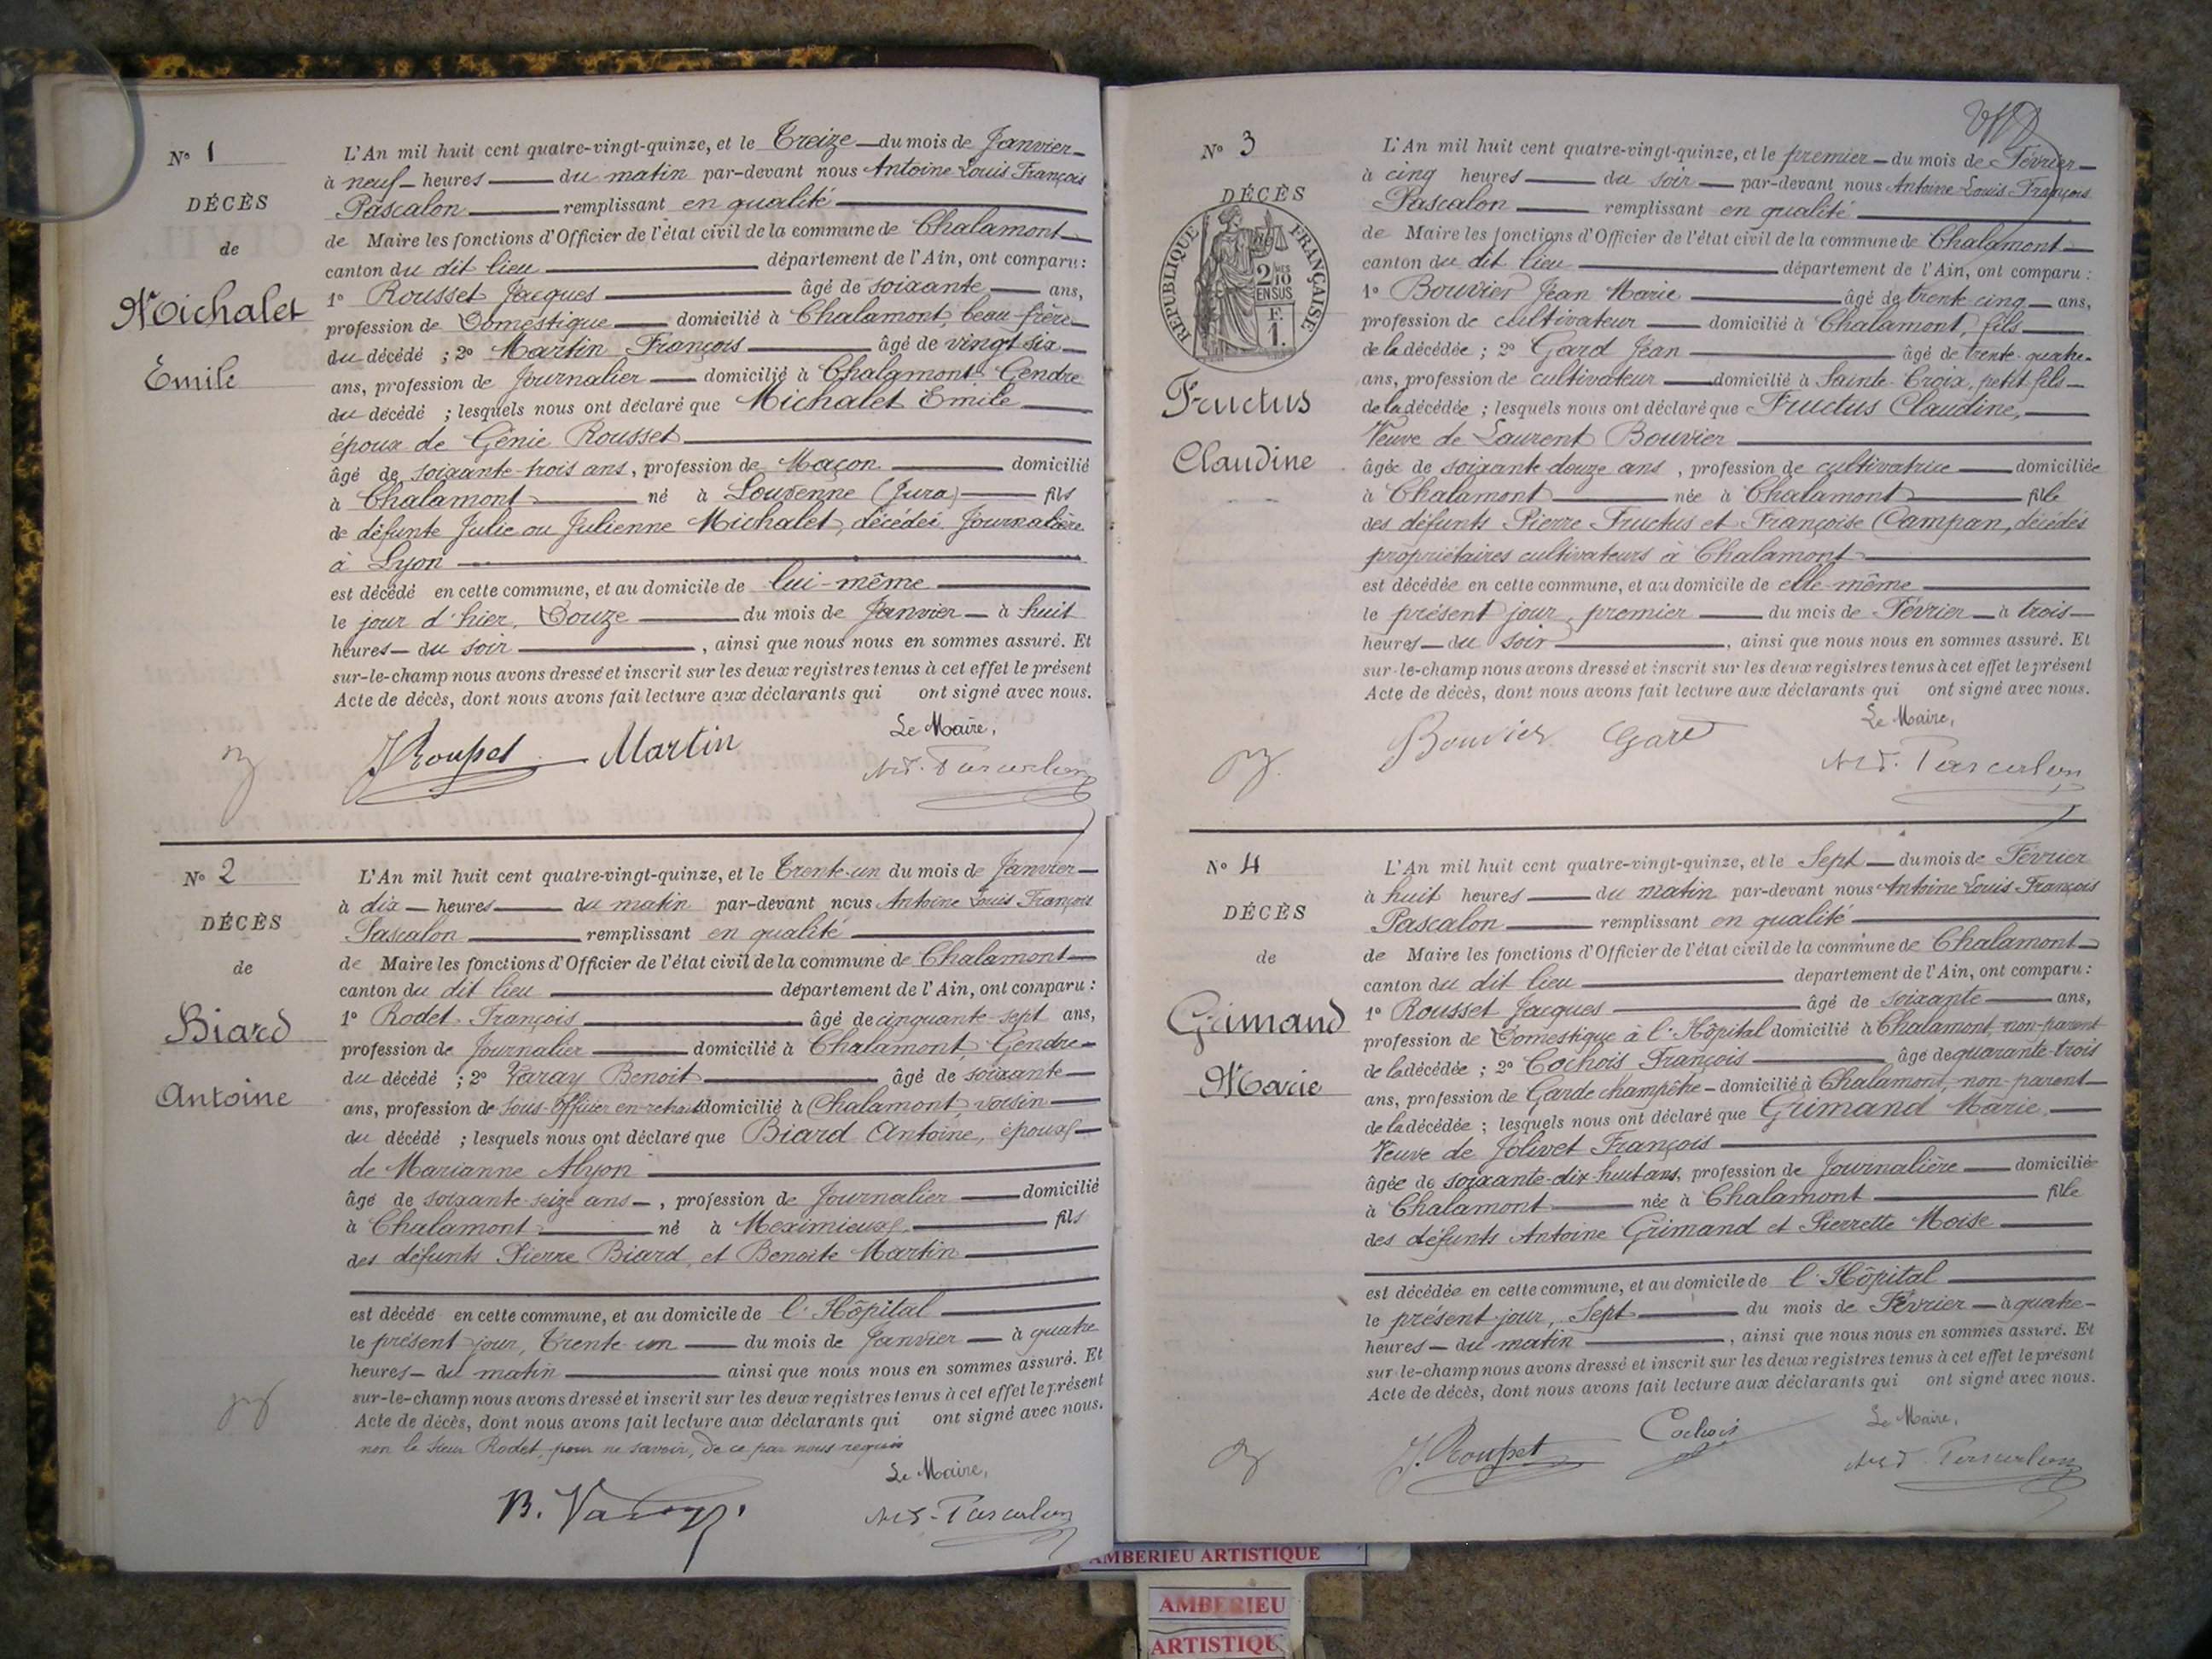 N° 1
DÉCÈS
de
Michalet
Emile
L'An mil huit cent quatre-vingt-quinze, et le Treize du mois de Janvier
à neuf heures du matin par-devant nous Antoine Louis François
Pascalon remplissant en qualité
de Maire les fonctions d'Officier de l'état civil de la commune de Chalamont
canton du dit lieu département de l'Ain, ont comparu :
1° Rousset Jacques âgé de soixante ans,
profession de Domestique domicilié à Chalamont, beau-frère
du décédé ; 2° Martin François âgé de vingt six
ans, profession de Journalier domicilié à Chalamont Gendre
du décédé ; lesquels nous ont déclaré que Michalet Emile
époux de Génie Rousset
âgé de soixante-trois ans, profession de Maçon domicilié
à Chalamont né à Louvenne (Jura) fils
de défunte Julie ou Julienne Michalet, décédée Journalière
à Lyon
est décédé en cette commune, et au domicile de lui-même
le jour d'hier, Douze du mois de Janvier à huit
heures du soir, ainsi que nous nous en sommes assuré. Et
sur-le-champ nous avons dressé et inscrit sur les deux registres tenus à cet effet le présent
Acte de décès, dont nous avons fait lecture aux déclarants qui ont signé avec nous.
Le Maire,
J Rousset Martin
Pascalon
N° 2
DÉCÈS
de
Biard
Antoine
L'An mil huit cent quatre-vingt-quinze, et le Trente-un du mois de Janvier
à dix heures du matin par-devant nous Antoine Louis François
Pascalon remplissant en qualité
de Maire les fonctions d'Officier de l'état civil de la commune de Chalamont
canton du dit lieu département de l'Ain, ont comparu :
1° Rodet François âgé de cinquante-sept ans,
profession de Journalier domicilié à Chalamont, Gendre
du décédé ; 2° Varay Benoit âgé de soixante
ans, profession de Sous-Officier en retraite domicilié à Chalamont, voisin
du décédé ; lesquels nous ont déclaré que Biard Antoine, époux
de Marianne Alyon
âgé de soixante-seize ans, profession de Journalier domicilié
à Chalamont né à Meximieux fils
des défunts Pierre Biard, et Benoite Martin
est décédé en cette commune, et au domicile de l'Hôpital
le présent jour, Trente un du mois de Janvier à quatre
heures du matin ainsi que nous nous en sommes assuré. Et
sur-le-champ nous avons dressé et inscrit sur les deux registres tenus à cet effet le présent
Acte de décès, dont nous avons fait lecture aux déclarants qui ont signé avec nous.
non le sieur Rodet, pour ne savoir, de ce par nous requis
Le Maire,
B. Varay
Pascalon
N° 3
DÉCÈS
RÉPUBLIQUE FRANÇAISE
2/10 MES
EN SUS
F.
1.
Fructus
Claudine
L'An mil huit cent quatre-vingt-quinze, et le premier du mois de Février
à cinq heures du soir par-devant nous Antoine Louis François
Pascalon remplissant en qualité
de Maire les fonctions d'Officier de l'état civil de la commune de Chalamont
canton du dit lieu département de l'Ain, ont comparu :
1° Bouvier Jean Marie âgé de trente cinq ans,
profession de cultivateur domicilié à Chalamont, fils
de la décédée ; 2° Gard Jean âgé de trente-quatre
ans, profession de cultivateur domicilié à Sainte-Croix, petit fils
de la décédée ; lesquels nous ont déclaré que Fructus Claudine,
Veuve de Laurent Bouvier
âgée de soixante-douze ans, profession de cultivatrice domiciliée
à Chalamont née à Chalamont fille
des défunts Pierre Fructus et Françoise Campan, décédés
propriétaires cultivateurs à Chalamont
est décédée en cette commune, et au domicile de elle-même
le présent jour, premier du mois de Février à trois
heures du soir, ainsi que nous nous en sommes assuré. Et
sur-le-champ nous avons dressé et inscrit sur les deux registres tenus à cet effet le présent
Acte de décès, dont nous avons fait lecture aux déclarants qui ont signé avec nous.
Le Maire,
Bouvier Gard
Pascalon
N° 4
DÉCÈS
de
Grimand
Marie
L'An mil huit cent quatre-vingt-quinze, et le Sept du mois de Février
à huit heures du matin par-devant nous Antoine Louis François
Pascalon remplissant en qualité
de Maire les fonctions d'Officier de l'état civil de la commune de Chalamont
canton du dit lieu département de l'Ain, ont comparu :
1° Rousset Jacques âgé de soixante ans,
profession de Domestique à l'Hôpital domicilié à Chalamont, non-parent
de la décédée ; 2° Cochois François âgé de quarante-trois
ans, profession de Garde champêtre domicilié à Chalamont, non-parent
de la décédée ; lesquels nous ont déclaré que Grimand Marie,
Veuve de Jolivet François
âgée de soixante-dix-huit ans, profession de Journalière domiciliée
à Chalamont née à Chalamont fille
des défunts Antoine Grimand et Pierrette Moise
est décédée en cette commune, et au domicile de l'Hôpital
le présent jour, Sept du mois de Février à quatre
heures du matin, ainsi que nous nous en sommes assuré. Et
sur-le-champ nous avons dressé et inscrit sur les deux registres tenus à cet effet le présent
Acte de décès, dont nous avons fait lecture aux déclarants qui ont signé avec nous.
Le Maire,
J. Rousset Cochois
Pascalon
AMBERIEU ARTISTIQUE
AMBERIEU
ARTISTIQU